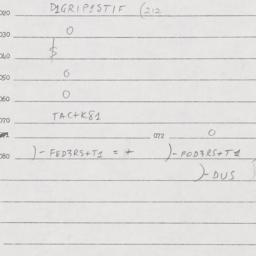 020 D1GRIP1STIF (212
030 0
$
040
050 0
060 0
070 TACTK81
071 072 0
080 )-FED3RST1 = + )-POD3RST1
)-DUS